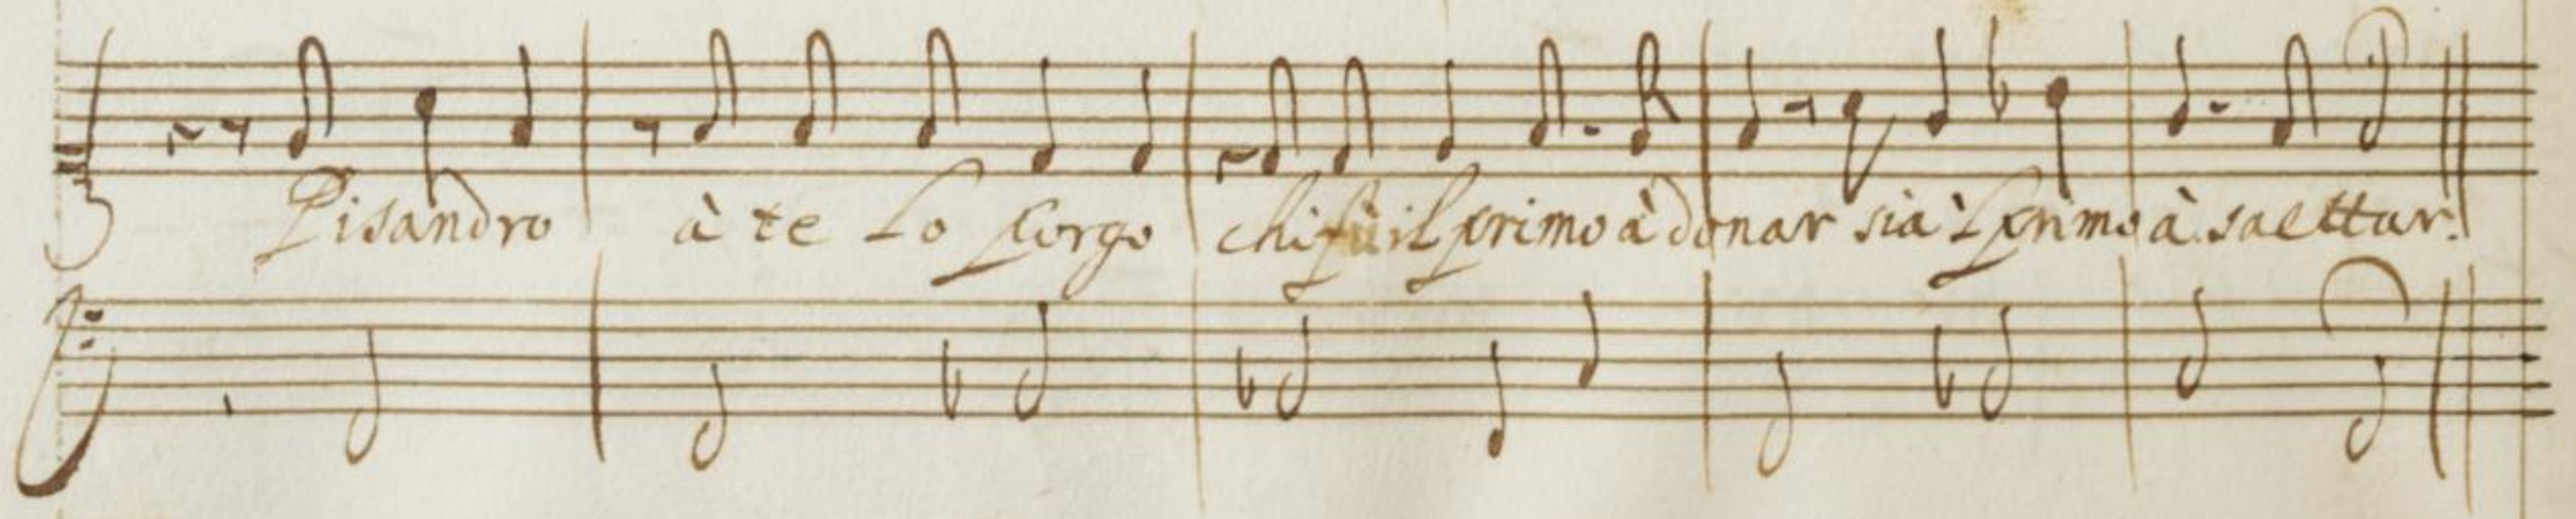 Pisandro à te Lo Porgo chi fù il primo à donar sia 'l primo à saettar.